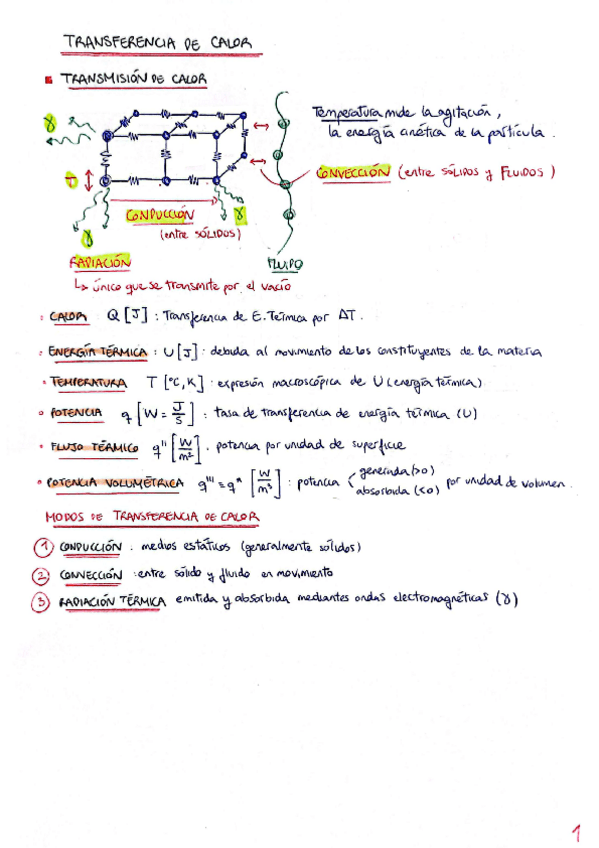 TRANSFERENCIA DE CALOR
TRANSMISIÓN DE CALOR
γ
Temperatura mide la agitación,
la energía cinética de la partícula.
T
CONVECCIÓN (entre SÓLIDOS y FLUIDOS)
CONDUCCIÓN
γ
(entre SÓLIDOS)
γ
RADIACIÓN
FLUIDO
↳ único que se transmite por el vacío
· CALOR Q [J] : Transferencia de E. Térmica por ΔT.
· ENERGÍA TÉRMICA : U [J] : debida al movimiento de los constituyentes de la materia
· TEMPERATURA T [°C, K] : expresión macroscópica de U (energía térmica)
· POTENCIA q [W = J/S] : tasa de transferencia de energía térmica (U)
· FLUJO TÉRMICO q'' [W/m²] . potencia por unidad de superficie
· POTENCIA VOLUMÉTRICA q''' = q* [W/m³] : potencia generada (>0) absorbida (<0) por unidad de volumen.
MODOS DE TRANSFERENCIA DE CALOR
① CONDUCCIÓN : medios estáticos (generalmente sólidos)
② CONVECCIÓN : entre sólido y fluido en movimiento
③ RADIACIÓN TÉRMICA emitida y absorbida mediantes ondas electromagnéticas (γ)
1